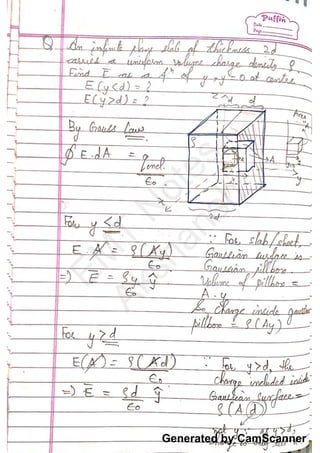 Puffin
Date
Page
Q An infinite plane slab of thickness 2d
carries a uniform volume charge density ρ.
Find E as a fn of y → y=0 at centre
E(y<d) = ?
E(y>d) = ?
By Gauss Law.
∮E·dA = qincl.
ε0
For y < d
E A = ρ(Ay)
ε0
⇒ E = ρy ŷ
ε0
∵ For slab/sheet,
Gaussian surface is
Gaussian pillbox.
Volume of pillbox =
A·y
So charge inside
pillbox = ρ(Ay)
For y > d
E(A) = ρ(Ad)
ε0
⇒ E = ρd ŷ
ε0
∵ For y>d, the
charge included inside
Gaussian surface =
ρ(A(d))
not y
d
2d
A
Generated by CamScanner